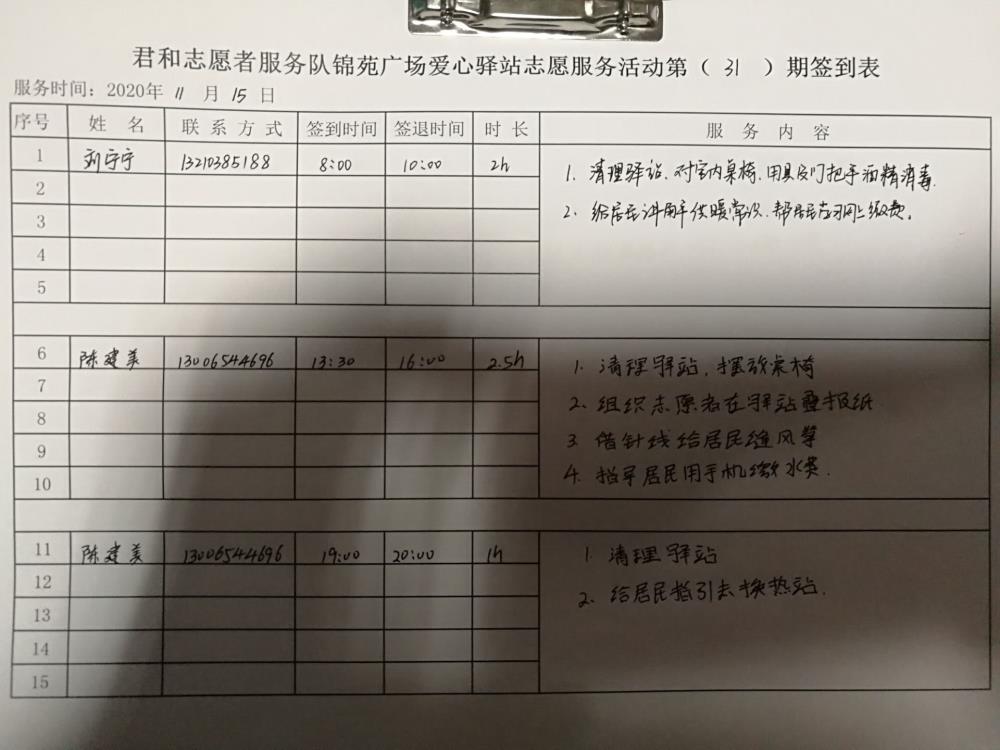 君和志愿者服务队锦苑广场爱心驿站志愿服务活动第（ 31 ）期签到表
服务时间：2020年 11 月 15 日
序号 姓 名 联 系 方 式 签到时间 签退时间 时 长 服 务 内 容
1 刘宁宁 13210385188 8:00 10:00 2h
1. 清理驿站、对室内桌椅、用具及门把手酒精消毒.
2
2. 给居民讲解供暖常识、帮居民网上缴费。
3
4
5
6 陈建美 13006544696 13:30 16:00 2.5h 1. 清理驿站，摆放桌椅
7
2. 组织志愿者在驿站叠报纸
8
3 借针线给居民缝风筝
9
4. 指导居民用手机缴水费.
10
11 陈建美 13006544696 19:00 20:00 1h 1. 清理驿站
12
2. 给居民指引去换热站.
13
14
15